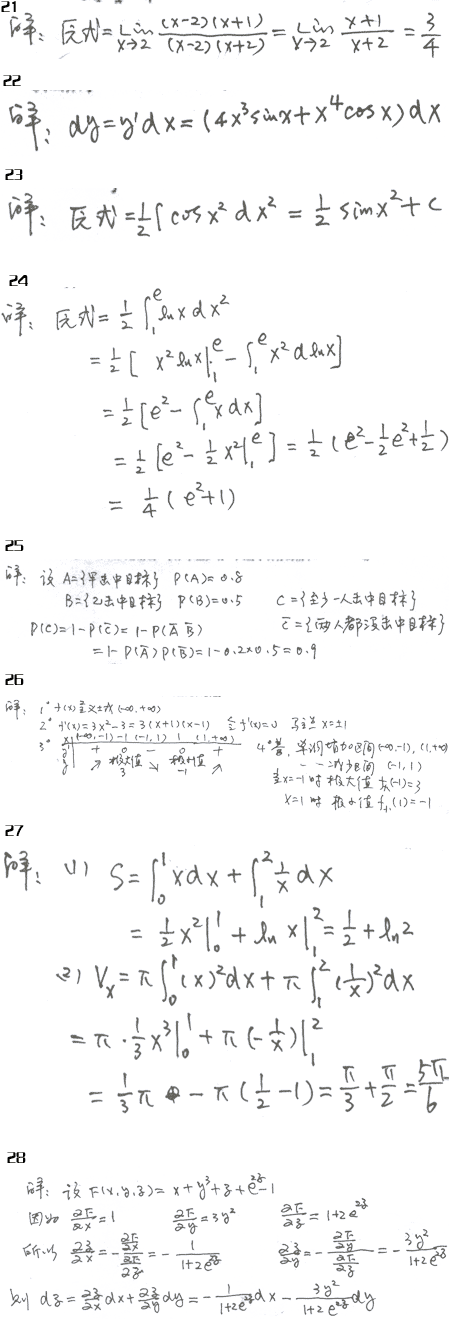 21
解: 原式=lim x→2 (x-2)(x+1)/(x-2)(x+2) = lim x→2 x+1/x+2 = 3/4
22
解: dy=y'dx=(4x³sinx+x⁴cosx)dx
23
解: 原式=1/2∫cosx²dx² = 1/2 sinx²+C
24
解: 原式= 1/2∫₁ᵉlnxdx²
=1/2[x²lnx|₁ᵉ-∫₁ᵉx²dlnx]
=1/2[e²-∫₁ᵉxdx]
=1/2[e²-1/2x²|₁ᵉ]=1/2(e²-1/2e²+1/2)
=1/4(e²+1)
25
解: 设 A={甲击中目标} P(A)=0.8
B={乙击中目标} P(B)=0.5 C={至少一人击中目标}
P(C)=1-P(C̄)=1-P(Ā B̄) C̄={两人都没击中目标}
=1-P(Ā)P(B̄)=1-0.2×0.5=0.9
26
解: 1° f(x)定义域(-∞,+∞)
2° f'(x)=3x²-3=3(x+1)(x-1) 令f'(x)=0 驻点 x=±1
3° x (-∞,-1) -1 (-1,1) 1 (1,+∞)
y' + 0 - 0 +
y ↗ 极大值 3 ↘ 极小值 -1 ↗
4° 单调增加区间(-∞,-1),(1,+∞)
减少区间 (-1,1)
x=-1时 极大值 f(-1)=3
x=1时 极小值 f(1)=-1
27
解: (1) S=∫₀¹xdx+∫₁²1/x dx
=1/2x²|₀¹+lnx|₁²=1/2+ln2
(2) Vₓ=π∫₀¹(x)²dx+π∫₁²(1/x)²dx
=π·1/3x³|₀¹+π(-1/x)|₁²
=1/3π-π(1/2-1)=π/3+π/2=5π/6
28
解: 设F(x,y,z)=x+y³+z+e²ᶻ-1
因为 ∂F/∂x=1 ∂F/∂y=3y² ∂F/∂z=1+2e²ᶻ
所以 ∂z/∂x=-(∂F/∂x)/(∂F/∂z)=-1/(1+2e²ᶻ) ∂z/∂y=-(∂F/∂y)/(∂F/∂z)=-3y²/(1+2e²ᶻ)
则 dz=∂z/∂x dx+∂z/∂y dy=-1/(1+2e²ᶻ)dx-3y²/(1+2e²ᶻ)dy